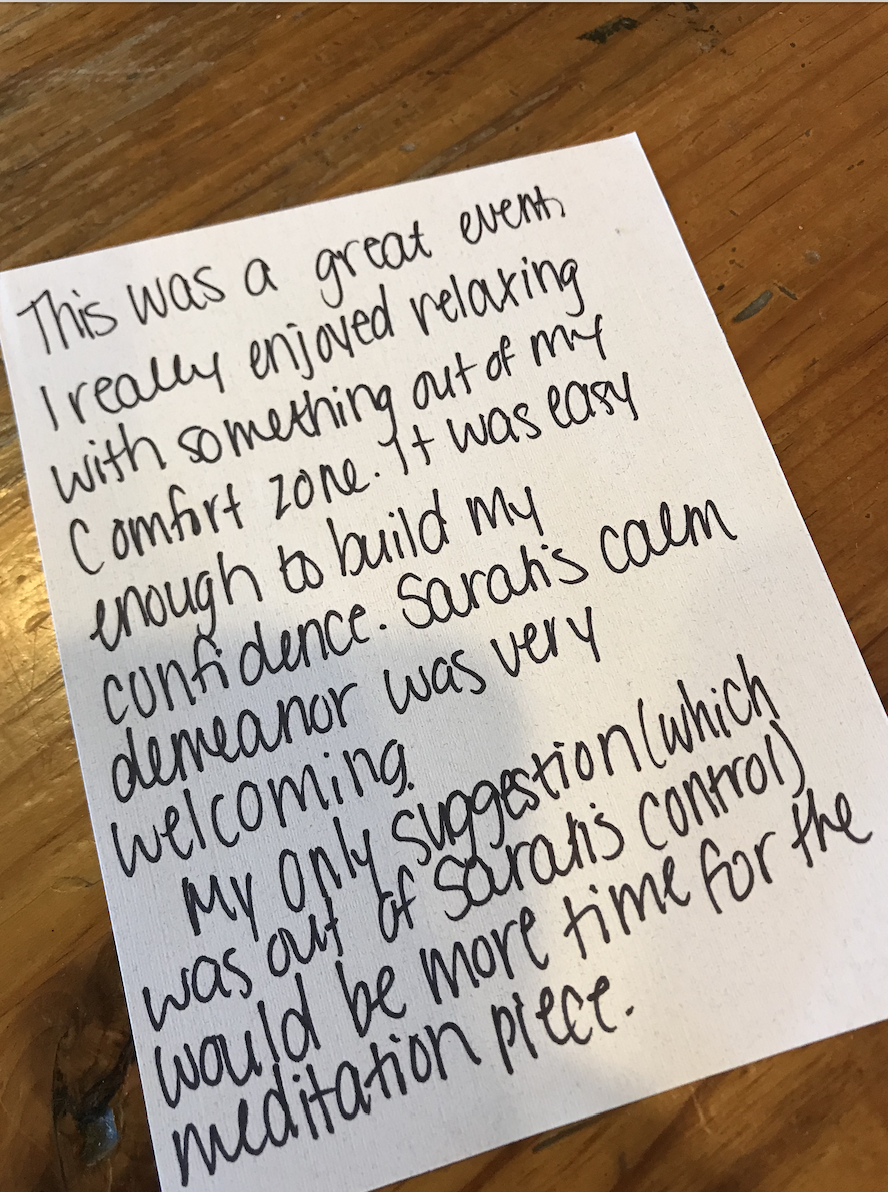 This was a great event.
I really enjoyed relaxing
with something out of my
Comfort zone. It was easy
enough to build my
confidence. Sarah's calm
demeanor was very
welcoming.
My only suggestion (which
was out of Sarah's control)
would be more time for the
meditation piece.